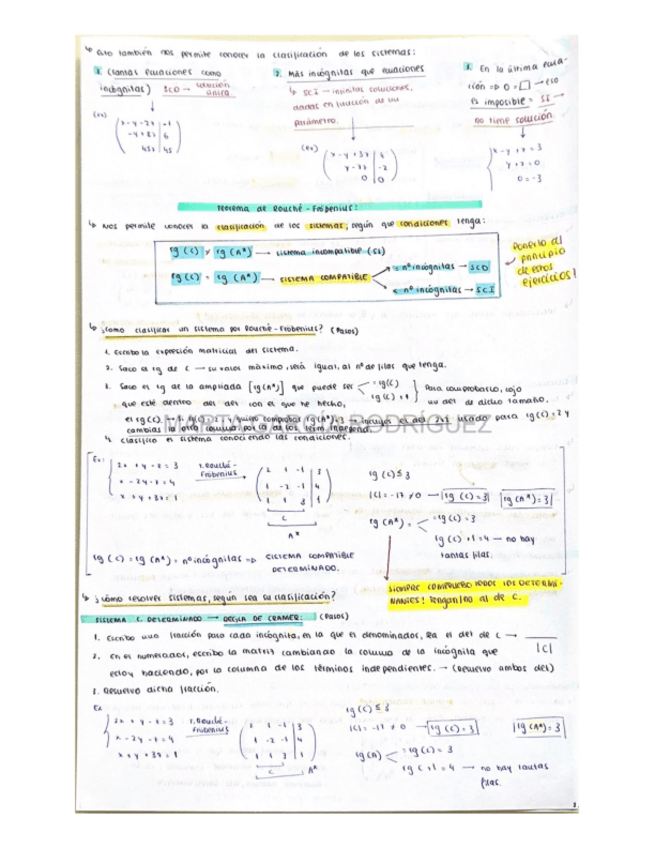 ↳ Esto también nos permite conocer la clasificación de los sistemas:
1. Cuantas ecuaciones como
incógnitas) SCD → solución
única
(ex)
x - y - 2z | -1
-y + 8z | 6
45z | 45
2. Más incógnitas que ecuaciones
↳ SCI → infinitas soluciones,
dadas en función de un
parámetro.
(ex)
x - y + 3z | 4
y - 7z | -2
0 | 0
3. En la última ecua-
ción ⇒ 0 = □ → eso
es imposible = SI →
no tiene solución
x - y + z = 3
y + z = 0
0 = -3
Teorema de Rouché - Frobenius:
↳ Nos permite conocer la clasificación de los sistemas, según que condiciones tenga:
rg (C) ≠ rg (A*) → sistema incompatible (SI)
rg (C) = rg (A*) → SISTEMA COMPATIBLE
= nº incógnitas → SCD
< nº incógnitas → SCI
Ponerlo al
principio
de estos
ejercicios!
↳ ¿Como clasificar un sistema por Rouché-Frobenius? (Pasos)
1. Escribo la expresión matricial del sistema.
2. Saco el rg de C → su valor máximo, será igual, al nº de filas que tenga.
3. Saco el rg de la ampliada [rg(A*)] que puede ser
= rg(C)
rg(C) + 1
Para comprobarlo, cojo
un det de dicho tamaño,
que esté dentro del det con el que he hecho,
MARTA GARCÍA RODRÍGUEZ
cambias la otra columna por la de los term. independ.
4. clasifico el sistema conociendo las condiciones.
Ex:
2x + y - z = 3
x - 2y - z = 4
x + y + 3z = 1
1. Rouché-
Frobenius
2 1 -1 | 3
1 -2 -1 | 4
1 1 3 | 1
C
A*
rg (C) ≤ 3
|C| = -17 ≠ 0 → rg (C) = 3 rg (A*) = 3
rg (A*) =
= rg (C) = 3
rg (C) + 1 = 4 → no hay
tantas filas.
rg (C) = rg (A*) = nº incógnitas ⇒ SISTEMA COMPATIBLE
DETERMINADO.
SIEMPRE COMPRUEBO TODOS LOS DETERMI-
NANTES! Tengan/no al de C.
↳ ¿Cómo resolver sistemas, según sea su clasificación?
SISTEMA C. DETERMINADO → REGLA DE CRAMER: (Pasos)
1. Escribo una fracción para cada incógnita, en la que el denominador, sea el det de C →
|C|
2. En el numerador, escribo la matriz cambiando la columna de la incógnita que
estoy haciendo, por la columna de los términos independientes. → (Resuelvo ambos det)
3. Resuelvo dicha fracción.
Ex
2x + y - z = 3
x - 2y - z = 4
x + y + 3z = 1
1. Rouché-
Frobenius
1 -1 | 3
1 -2 -1 | 4
1 1 3 | 1
C
A*
rg (C) ≤ 3
|C| = -17 ≠ 0 → rg (C) = 3 rg (A*) = 3
rg (A)
= rg (C) = 3
rg C + 1 = 4 → no hay tantas
filas.